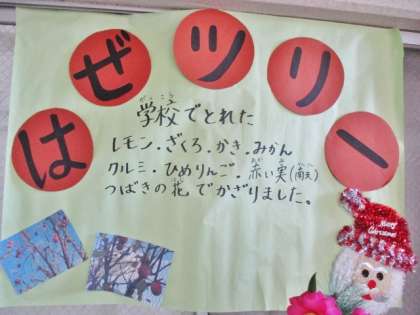 はぜツリー
学校でとれた
レモン・ざくろ・かき・みかん
クルミ・ひめりんご・赤い実(南天)
つばきの花でかざりました。
Merry
Christmas